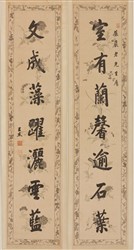 室有蘭馨逾石葉
文成藻躍灑雲藍